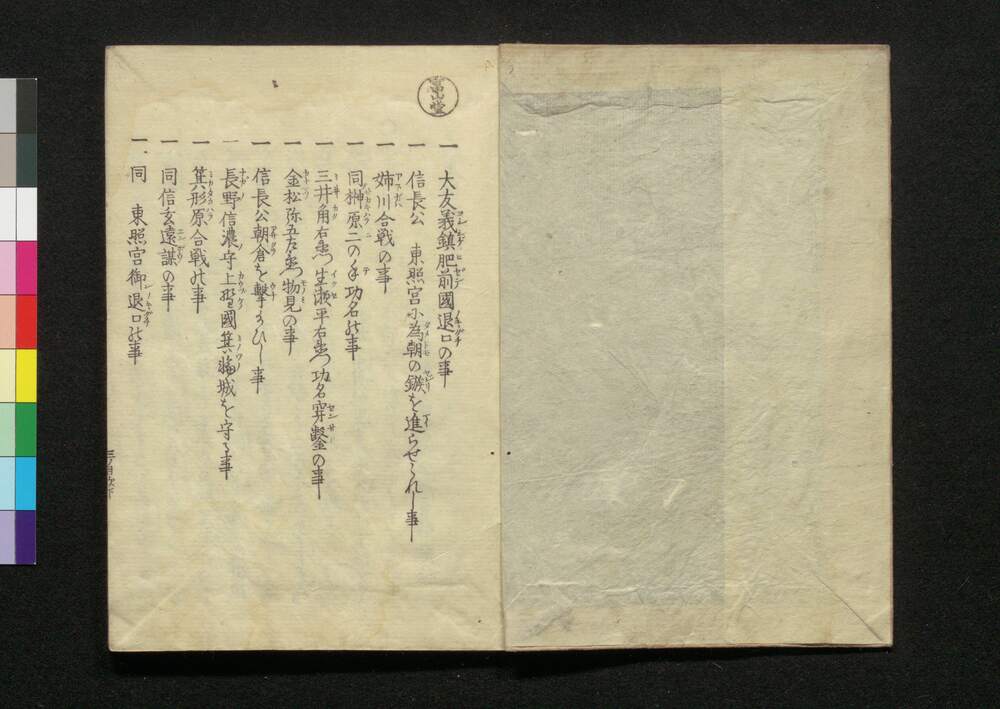 富山堂
一 大友義鎮肥前國退口の事
一 信長公 東照宮に為朝の鏃を進らせられし事
一 姉川合戦の事
一 同榊原二の手功名の事
一 三井角右衛門生瀬平右衛門功名穿鑿の事
一 金松弥五左衛門物見の事
一 信長公朝倉を撃給ひし事
一 長野信濃守上野國箕輪城を守る事
一 箕形原合戦の事
一 同信玄遠謀の事
一 同 東照宮御退口の事
三ノ目次下